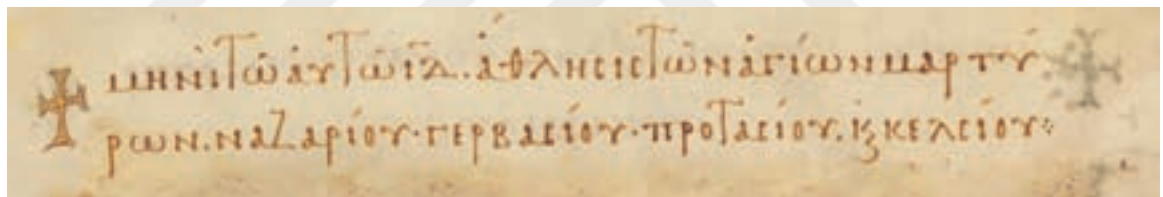 ✝ μηνὶ τῶ αὐτῶ ιδ. ἄθλησις τῶν ἁγίων μαρτύ
ρων. ναζαρίου· γερβασίου· προτασίου. ϗ κελσίου·: